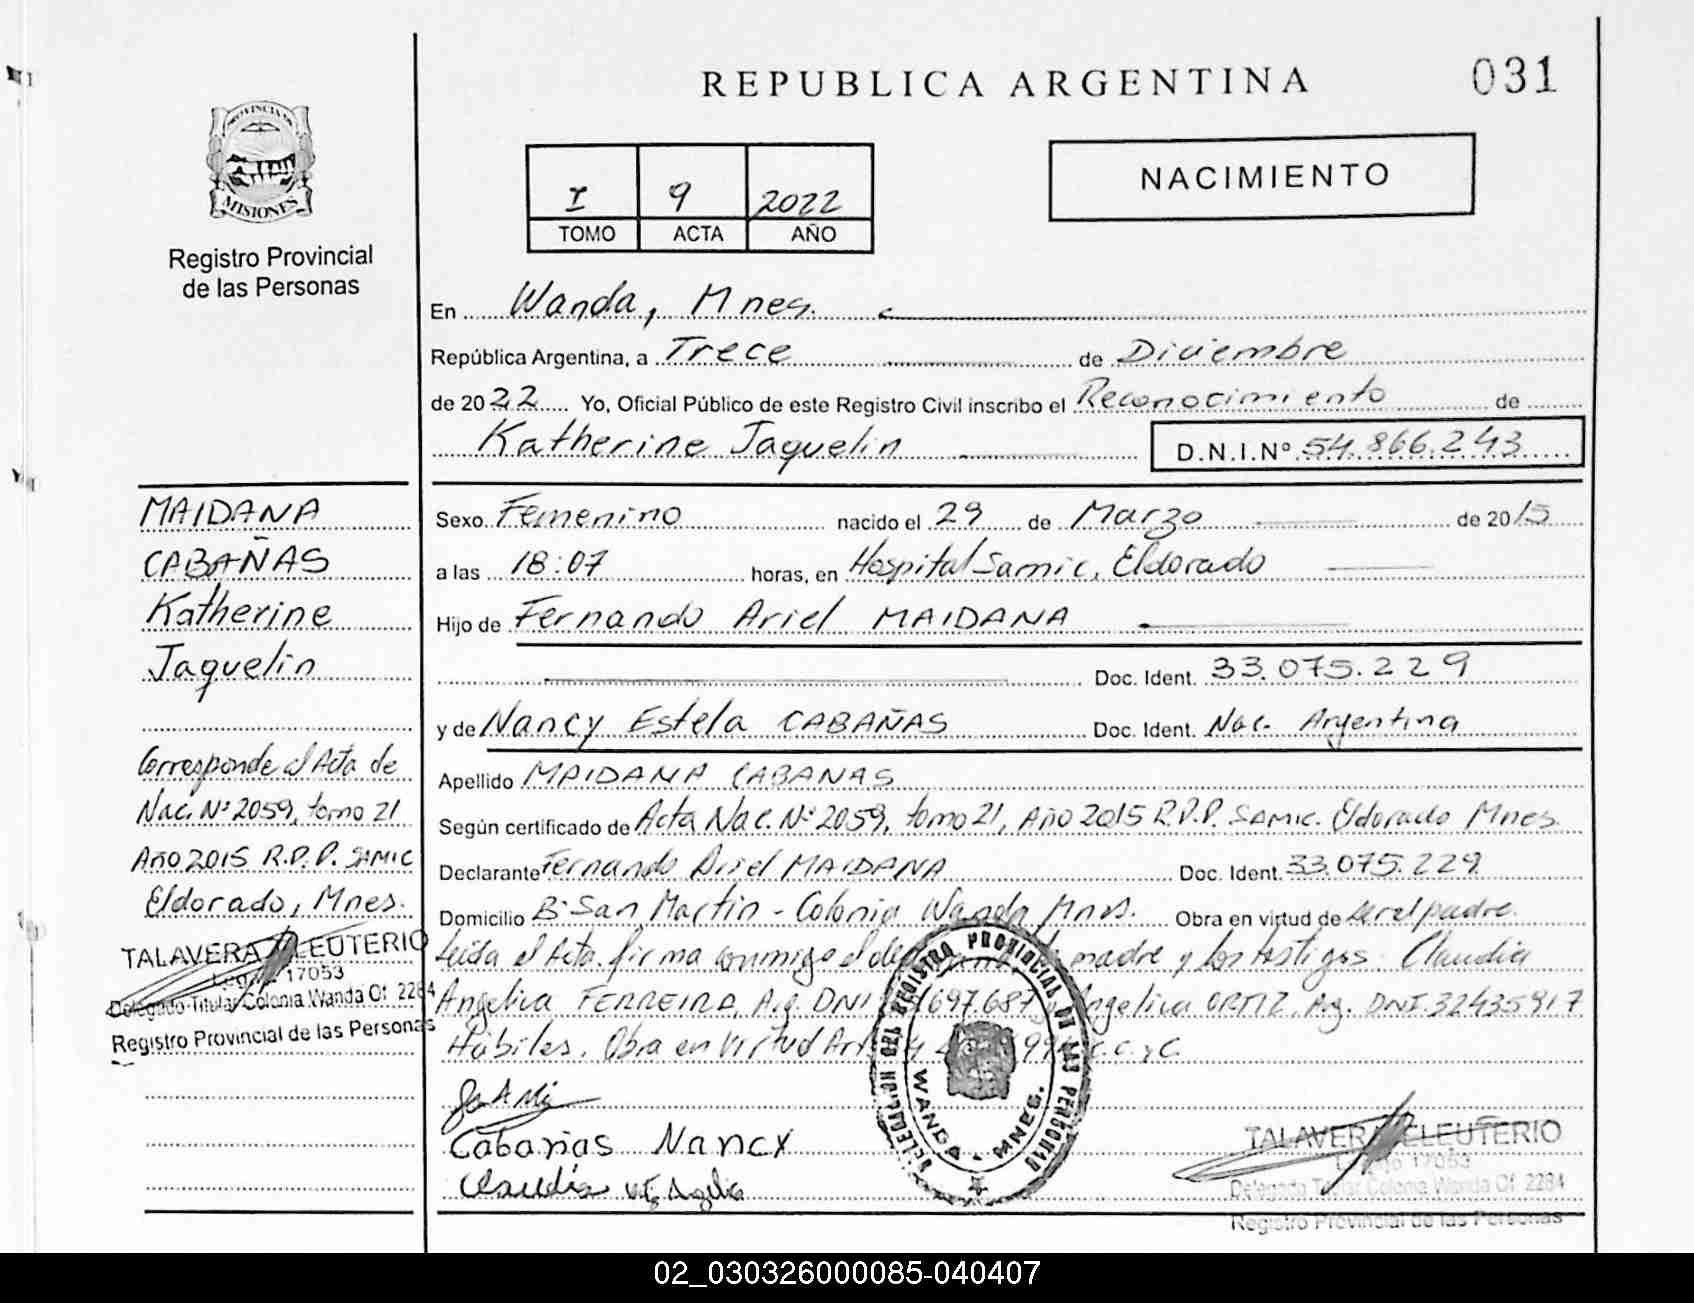 REPUBLICA ARGENTINA
031
PROVINCIA DE
MISIONES
Registro Provincial
de las Personas
I 9 2022
TOMO ACTA AÑO
NACIMIENTO
En Wanda, Mnes.
República Argentina, a Trece de Diciembre
de 2022 Yo, Oficial Público de este Registro Civil inscribo el Reconocimiento de
Katherine Jaquelin D.N.I.Nº 54.866.243
Sexo Femenino nacido el 29 de Marzo de 2015
a las 18:07 horas, en Hospital Samic, Eldorado
Hijo de Fernando Ariel MAIDANA
Doc. Ident. 33.075.229
y de Nancy Estela CABAÑAS Doc. Ident. Nac. Argentina
Apellido MAIDANA CABANAS
Según certificado de Acta Nac. Nº 2059, tomo 21, Año 2015 R.P.P. SAMIC. Eldorado Mnes.
Declarante Fernando Ariel MAIDANA Doc. Ident. 33.075.229
Domicilio Bº San Martin - Colonia Wanda Mnes. Obra en virtud de ser el padre.
Leida el Acta. firma conmigo el madre y los testigos. Claudia
Angelica FERREIRA, Arg. DNI 697.687 Angelica ORTIZ, Arg. DNI. 32435917
Habiles. Obra en Virtud Art. C.C.yC.
Cabañas Nancy
Claudia
DELEGACION DEL REGISTRO PROVINCIAL DE LAS PERSONAS
WANDA - MNES.
TALAVERA ELEUTERIO
Legajo 17053
Delegado Titular Colonia Wanda Of. 2284
Registro Provincial de las Personas
MAIDANA
CABAÑAS
Katherine
Jaquelin
Corresponde al Acta de
Nac. Nº 2059, tomo 21
Año 2015 R.P.P. SAMIC
Eldorado, Mnes.
TALAVERA ELEUTERIO
Legajo 17053
Delegado Titular Colonia Wanda Of. 2284
Registro Provincial de las Personas
02_030326000085-040407